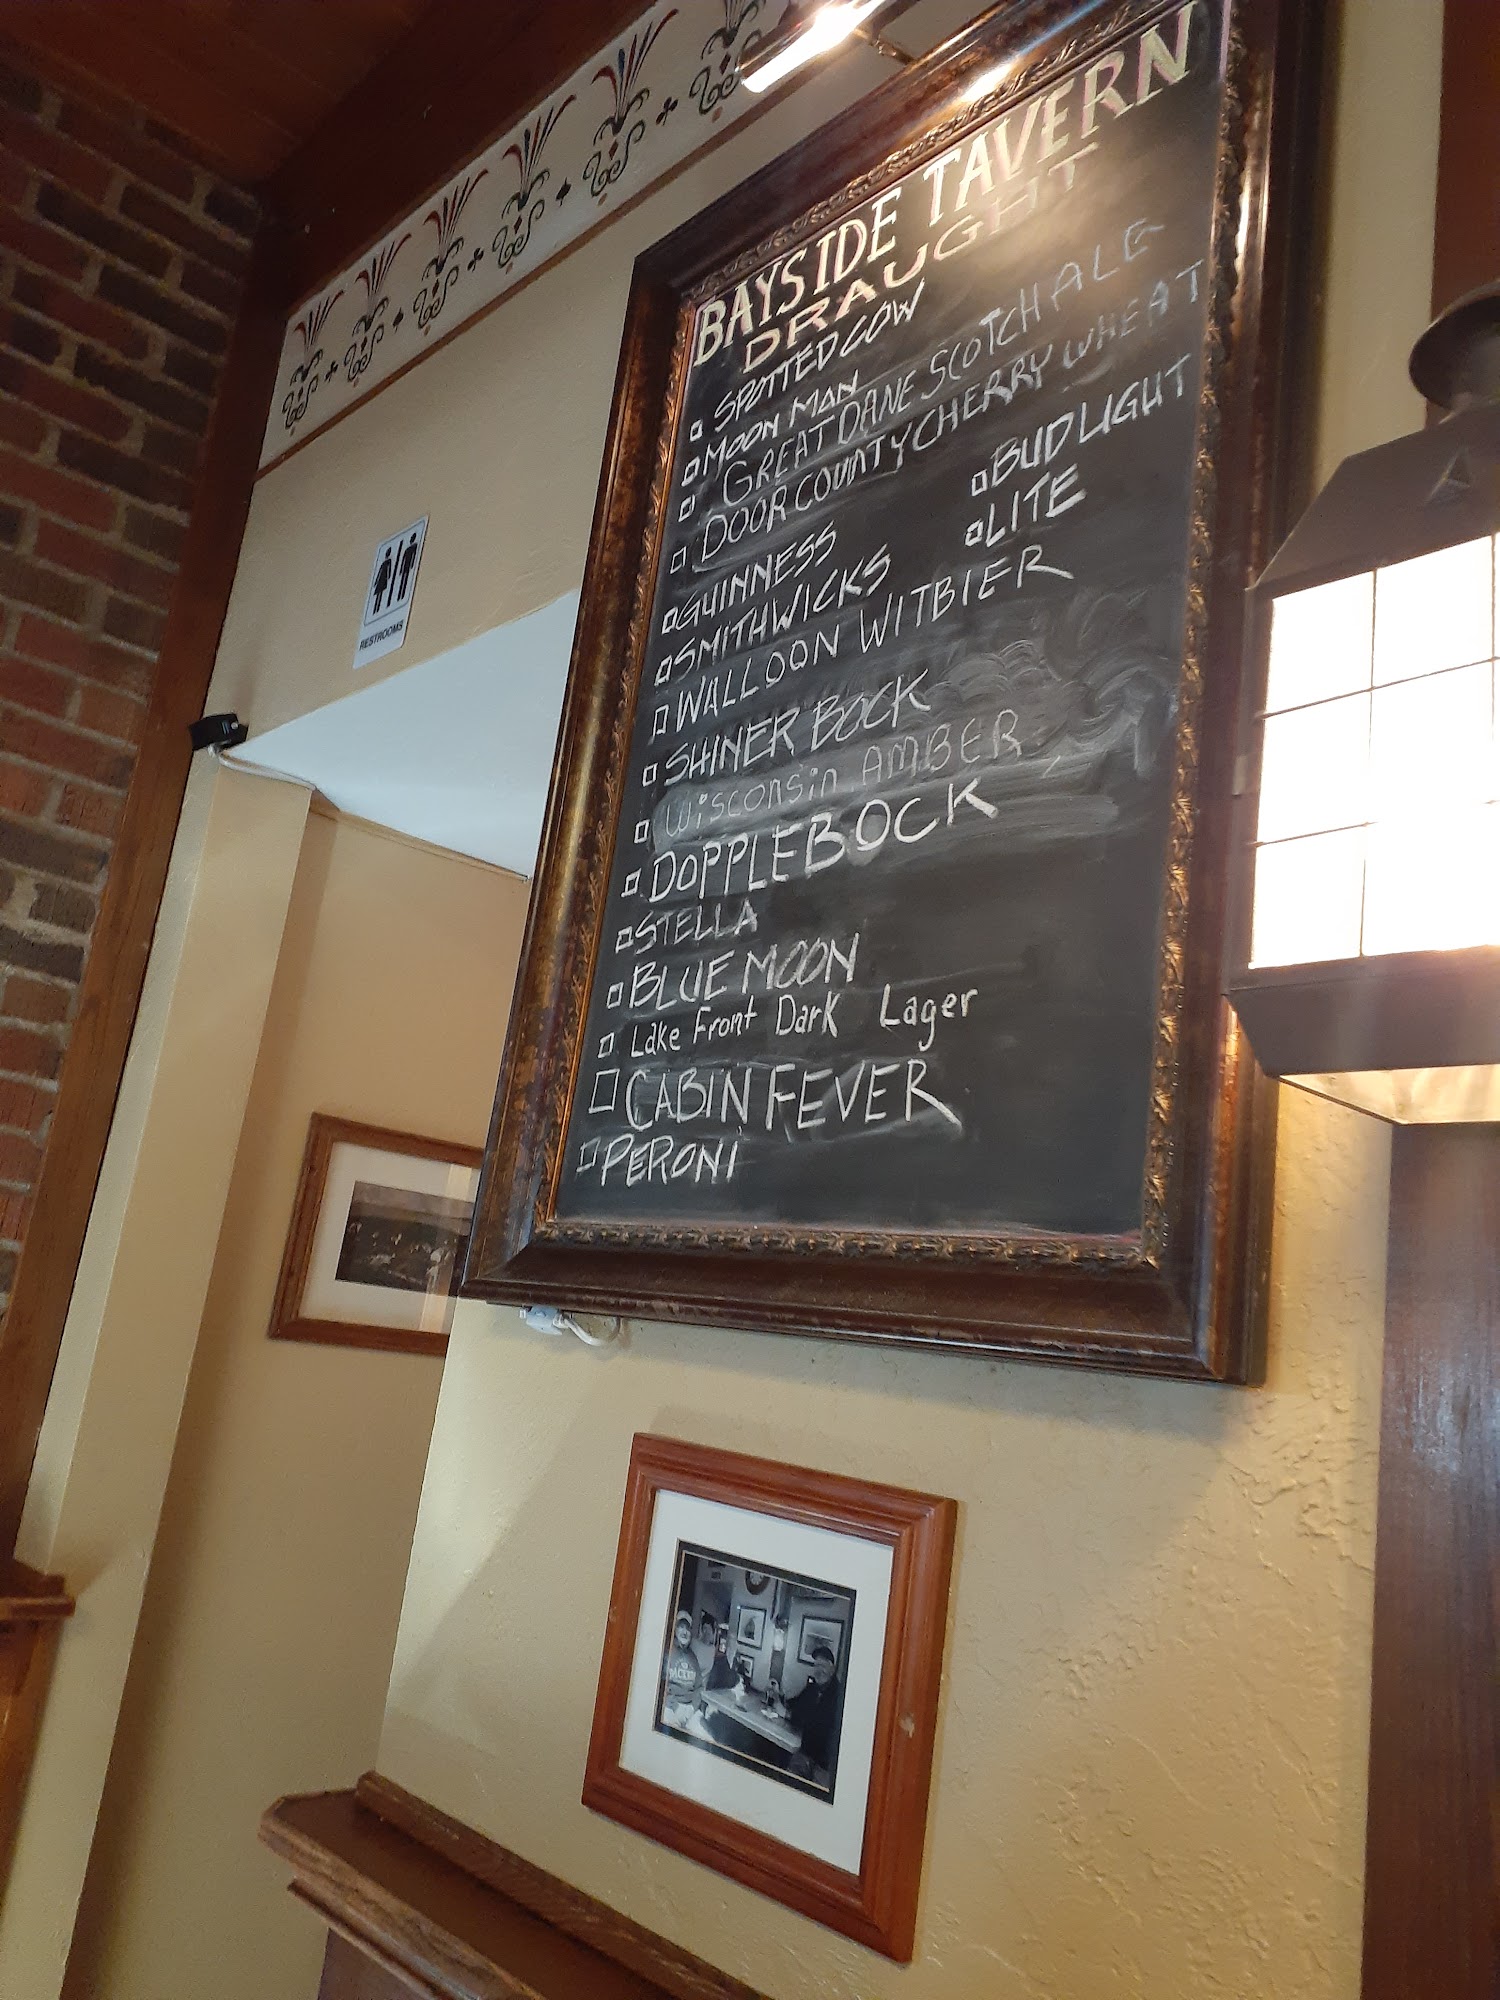 BAYSIDE TAVERN
DRAUGHT
SPOTTED COW
MOON MAN
GREAT DANE SCOTCH ALE
DOOR COUNTY CHERRY WHEAT
BUD LIGHT
GUINNESS
LITE
SMITHWICKS
WALLOON WITBIER
SHINER BOCK
Wisconsin AMBER
DOPPLEBOCK
STELLA
BLUE MOON
Lake Front Dark Lager
CABIN FEVER
PERONi
RESTROOMS